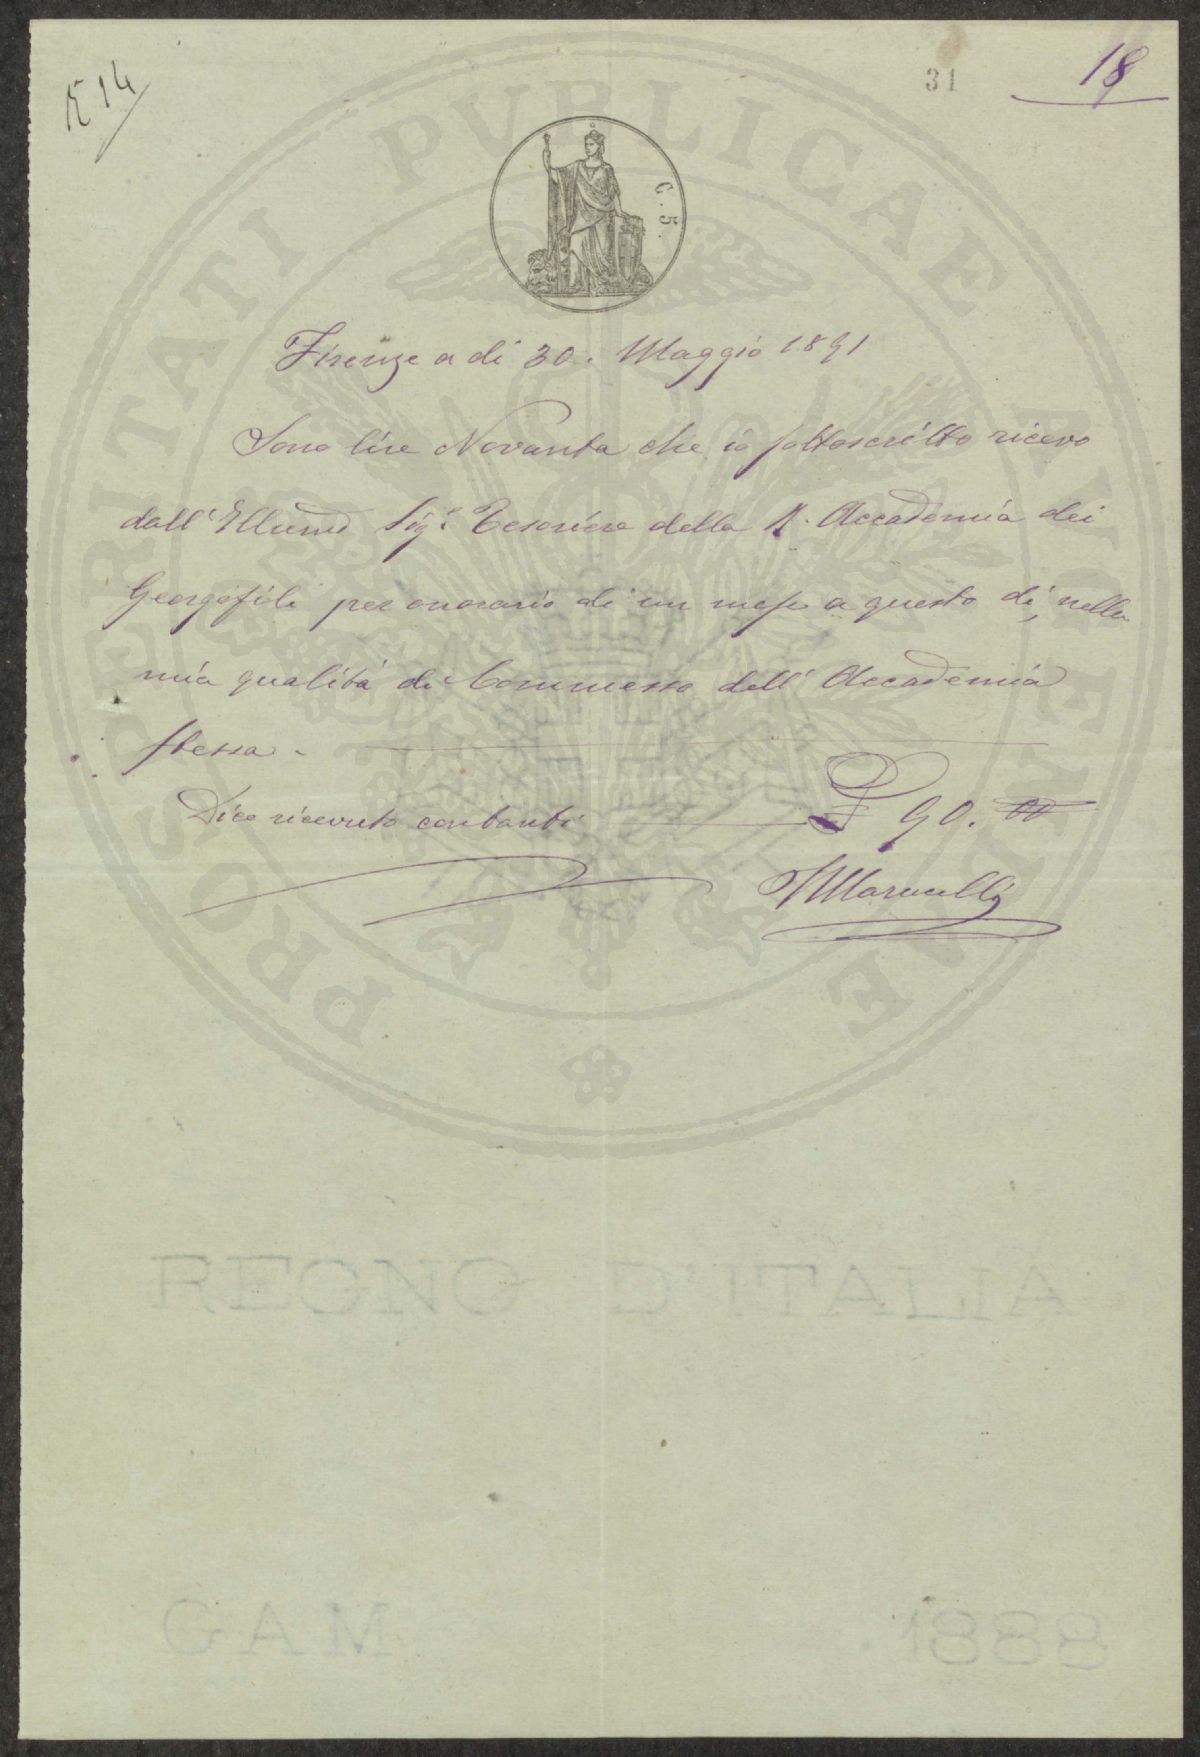 R 14
31
18
PROSPERITATI PVBLICAE AVGENDAE
C. 5.
Firenze a di 30. Maggio 1891
Sono lire Novanta che io sottoscritto ricevo
dall' Illumo Sigr. Tesoriere della R. Accademia dei
Georgofili per onorario di un mese a questo dí, nella
mia qualitá di Commesso dell' Accademia
stessa.
Dico ricevuto contanti £ 90. 00
Marucelli
REGNO D'ITALIA
GAM 1888